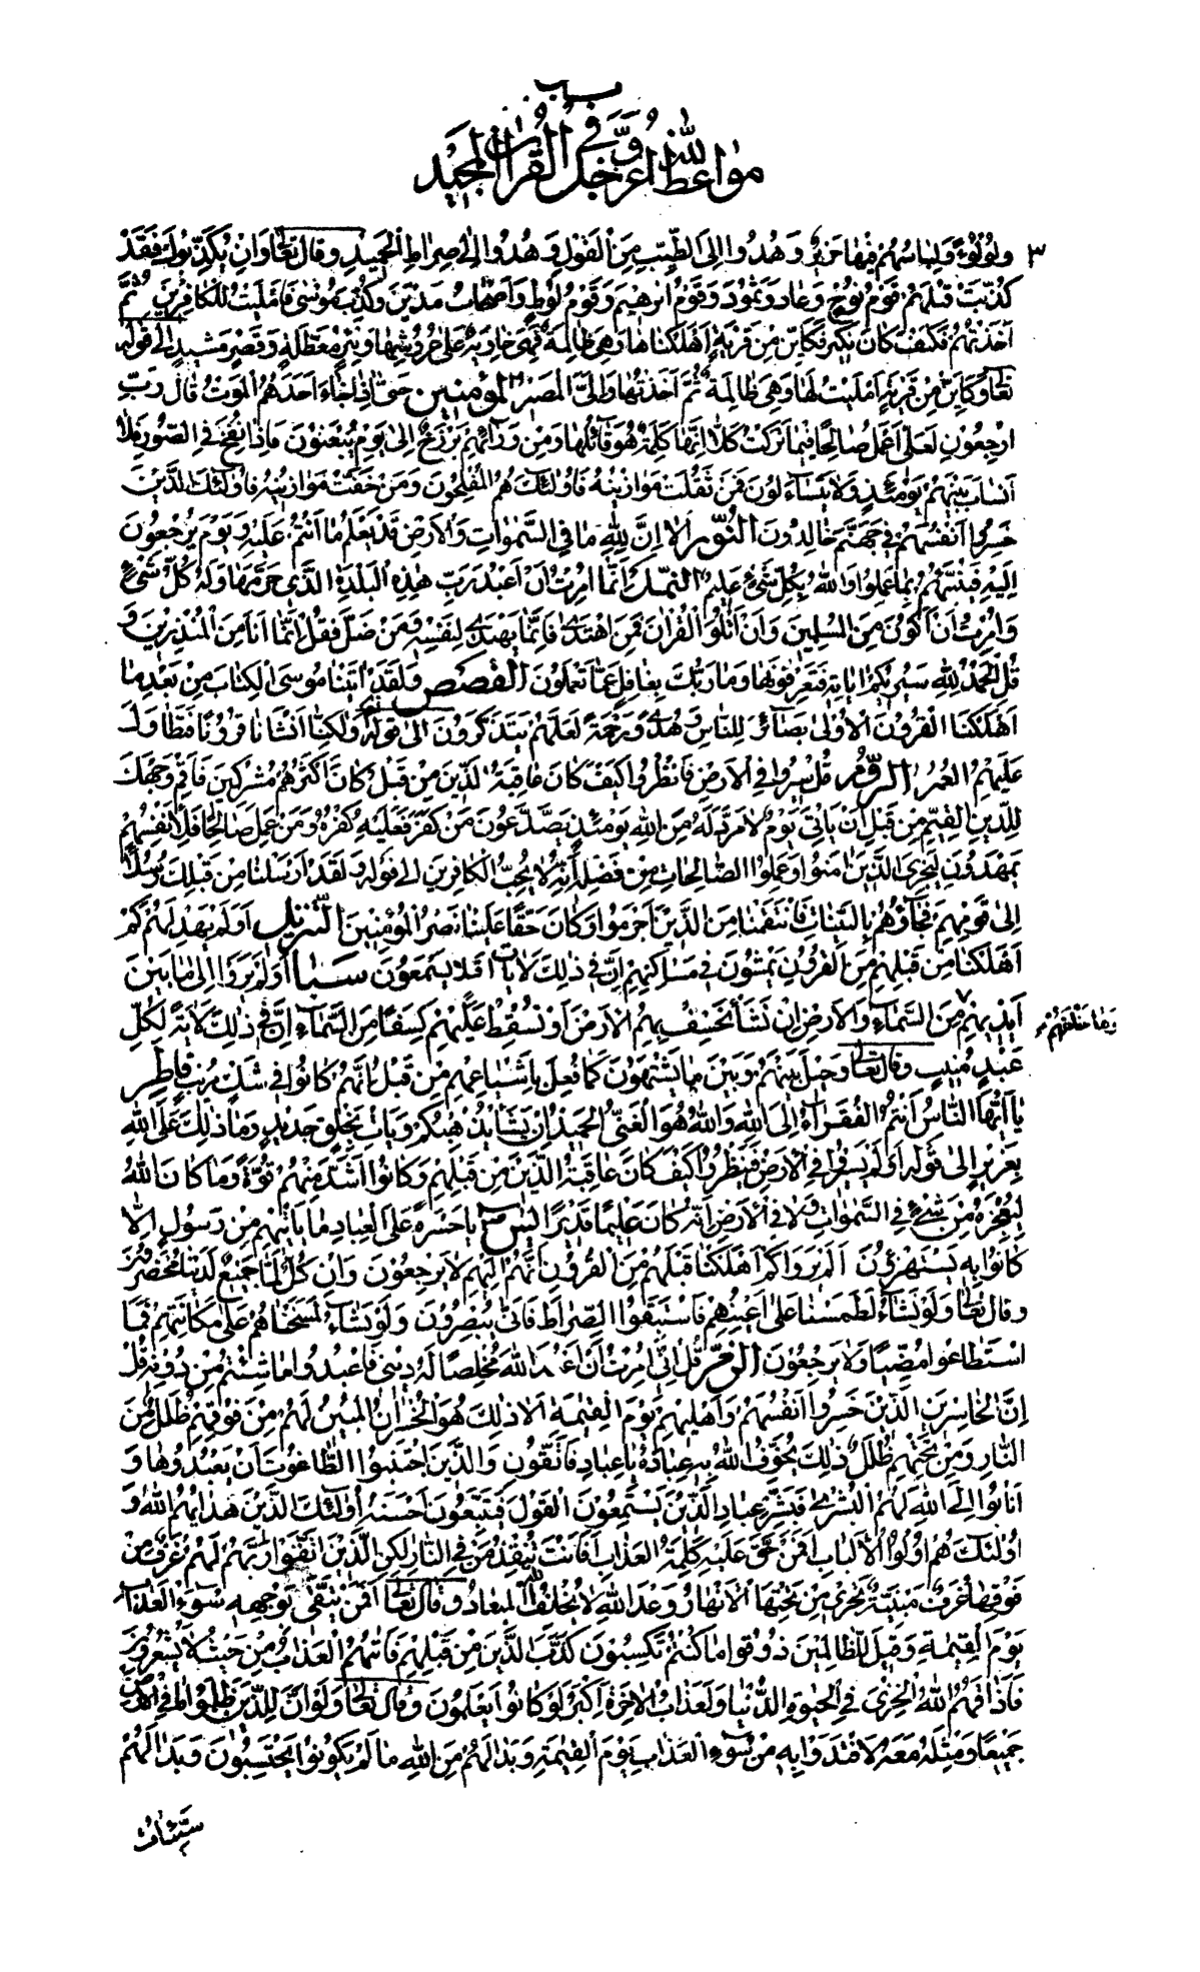 باب
مواعظ الله عزّ وجلّ في القرآن المجيد
٣
ولؤلؤا ولباسهم فيها حرير وهدوا الى الطيّب من القول وهدوا الى صراط الحميد وقال تعالى وان يكذّبوك فقد
كذّبت قبلهم قوم نوح وعاد وثمود وقوم ابرهيم وقوم لوط واصحاب مدين وكذّب موسى فامليت للكافرين ثمّ
اخذتهم فكيف كان نكير فكايّن من قرية اهلكناها وهي ظالمة فهي خاوية على عروشها وبئر معطّلة وقصر مشيد الى قوله
تعالى وكايّن من قرية امليت لها وهي ظالمة ثمّ اخذتها واليّ المصير المؤمنين حتى اذا جاء احدهم الموت قال ربّ
ارجعون لعلّي اعمل صالحا فيما تركت كلّا انّها كلمة هو قائلها ومن ورائهم برزخ الى يوم يبعثون فاذا نفخ في الصّور فلا
انساب بينهم يومئذ ولا يتساءلون فمن ثقلت موازينه فاولئك هم المفلحون ومن خفّت موازينه فاولئك الّذين
خسروا انفسهم في جهنّم خالدون النّور الا انّ لله ما في السّموات والارض قد يعلم ما انتم عليه ويوم يرجعون
اليه فينبّئهم بما عملوا والله بكلّ شيء عليم النمل انّما امرت ان اعبد ربّ هذه البلدة الّذي حرّمها وله كلّ شيء
وامرت ان اكون من المسلمين وان اتلوا القران فمن اهتدى فانّما يهتدي لنفسه ومن ضلّ فقل انّما انا من المنذرين و
قل الحمد لله سيريكم اياته فتعرفونها وما ربّك بغافل عمّا تعملون القصص ولقد اتينا موسى الكتاب من بعد ما
اهلكنا القرون الاولى بصائر للناس وهدى ورحمة لعلّهم يتذكّرون الى قوله ولكنّا انشانا قرونا فتطاول
عليهم العمر الرّوم قل سيروا في الارض فانظروا كيف كان عاقبة الذين من قبل كان اكثرهم مشركين فاقم وجهك
للدّين القيّم من قبل ان ياتي يوم لا مردّ له من الله يومئذ يصّدّعون من كفر فعليه كفره ومن عمل صالحا فلانفسهم
يمهدون ليجزي الذين امنوا وعملوا الصّالحات من فضله انّه لا يحبّ الكافرين الى قوله ولقد ارسلنا من قبلك رسلا
الى قومهم فجاؤهم بالبيّنات فانتقمنا من الّذين اجرموا وكان حقّا علينا نصر المؤمنين التنزيل اولم يهد لهم كم
اهلكنا من قبلهم من القرون يمشون في مساكنهم انّ في ذلك لايات افلا يسمعون سبا اولم يروا الى ما بين
ايديهم من السّماء والارض ان نشا نخسف بهم الارض او نسقط عليهم كسفا من السّماء انّ في ذلك لاية لكلّ
وما خلفهم
عبد منيب وقال تعالى وحيل بينهم وبين ما يشتهون كما فعل باشياعهم من قبل انّهم كانوا في شك مريب فاطر
يا ايّها الناس انتم الفقراء الى الله والله هو الغنيّ الحميد ان يشا يذهبكم ويات بخلق جديد وما ذلك على الله
بعزيز الى قوله اولم يسيروا في الارض فينظروا كيف كان عاقبة الذين من قبلهم وكانوا اشدّ منهم قوّة وما كان الله
ليعجزه من شيء في السّموات ولا في الارض انّه كان عليما قديرا يس يا حسرة على العباد ما ياتيهم من رسول الا
كانوا به يستهزؤن الم يروا كم اهلكنا قبلهم من القرون انّهم اليهم لا يرجعون وان كلّ لمّا جميع لدينا محضرون
وقال تعالى ولو نشاء لطمسنا على اعينهم فاستبقوا الصّراط فانّى يبصرون ولو نشاء لمسخناهم على مكانتهم فما
استطاعوا مضيّا ولا يرجعون الزمر قل انّي امرت ان اعبد الله مخلصا له ديني فاعبدوا ما شئتم من دونه قل
انّ الخاسرين الّذين خسروا انفسهم واهليهم يوم القيمة الا ذلك هو الخسران المبين لهم من فوقهم ظلل من
النّار ومن تحتهم ظلل ذلك يخوّف الله به عباده يا عباد فاتّقون والّذين اجتنبوا الطّاغوت ان يعبدوها و
انابوا الى الله لهم البشرى فبشّر عباد الّذين يستمعون القول فيتّبعون احسنه اولئك الذين هداهم الله و
اولئك هم اولوا الالباب افمن حقّ عليه كلمة العذاب افانت تنقذ من في النار لكن الّذين اتّقوا ربّهم لهم غرف من
فوقها غرف مبنيّة تجري من تحتها الانهار وعد الله لا يخلف الله الميعاد وقال تعالى افمن يتّقي بوجهه سوء العذاب
يوم القيمة وقيل للظالمين ذوقوا ما كنتم تكسبون كذّب الّذين من قبلهم فاتيهم العذاب من حيث لا يشعرون
فاذاقهم الله الخزي في الحيوة الدّنيا ولعذاب الاخرة اكبر لو كانوا يعلمون وقال تعالى ولو انّ للّذين ظلموا ما في الارض
جميعا ومثله معه لافتدوا به من سوء العذاب يوم القيمة وبدا لهم من الله ما لم يكونوا يحتسبون وبدا لهم
سيّئات